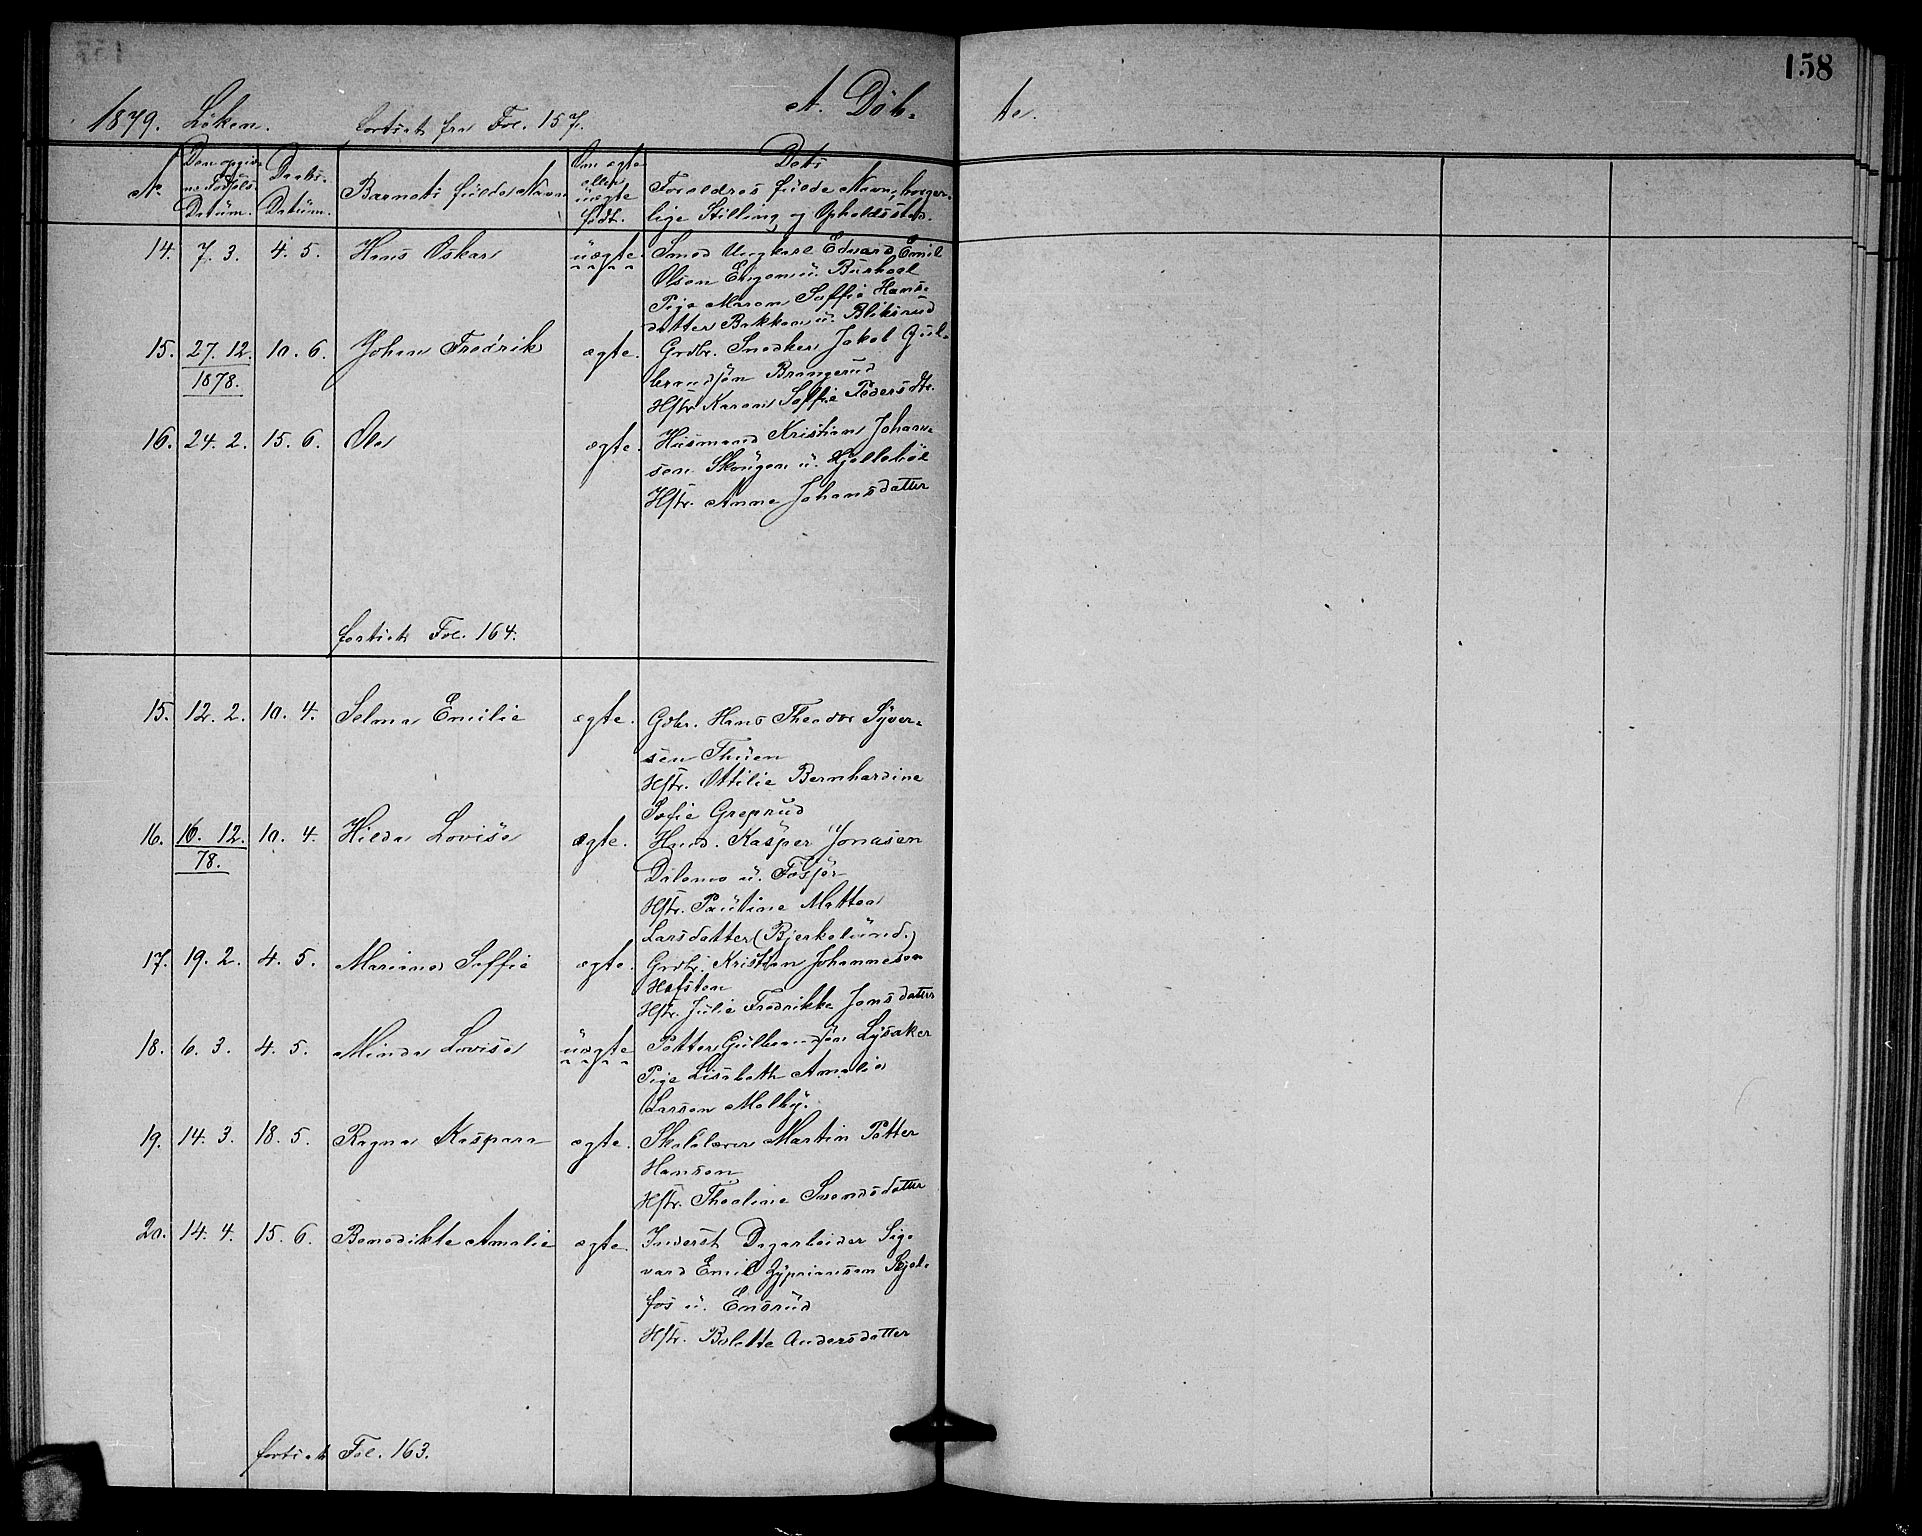 158
1879. Löken. fortsat fra Fol. 157. A. Döb-
te.
No Den opgiv- Daabs- Barnets fulde Navn Om ægte Dets
ne Fødsels- Datum. eller Forældres fulde Navn, borger-
Datum. uægte lige Stilling og Opholdssted.
født.
14. 7. 3. 4. 5. Hans Oskar uægte Smed Ungkarl Edvard Emil
Olsen Engen u. Burhoel
Pige Maren Soffie Hans-
datter Bakken u. Bliksrud
15. 27. 12. 10. 6. Johan Fredrik ægte. Grdbr. Snedker Jakob Gul-
1878. brandsøn Brangerud
Hstr. Karen Soffie Pedersdtr.
16. 24. 2. 15. 6. Ole ægte. Husmand Kristian Johan-
sen Skougen u. Kjellebøl
Hstr. Anne Johansdatter
fortsat Fol. 164.
15. 12. 2. 10. 4. Selma Emilie ægte. Gdbr. Hans Theodor Syver-
sen Thuen
Hstr. Ottilie Bernhardine
Sofie Greprud
16. 16. 12. 10. 4. Hilda Lovise ægte. Husd. Kasper Jonasen
78. Dalemo u. Fosjør
Hstr. Pauline Mathea
Larsdatter (Bjerkelund.)
17. 19. 2. 4. 5. Mariane Soffie ægte. Grdbr. Kristian Johannesen
Hafsten
Hstr. Julie Fredrikke Jensdatter
18. 6. 3. 4. 5. Minda Lovise uægte Petter Gulbrandsøn Lysaker
Pige Lisabeth Amalie
Larsen Melby.
19. 14. 3. 18. 5. Ragna Kaspara ægte. Skolelærer Martin Petter
Hansen
Hstr. Thealine Svendsdatter
20. 14. 4. 15. 6. Benedikte Amalie ægte. Inderst Dagarbeider Sige
vard Emil Zyprianssen Skjel-
fos u. Ensrud
Hstr. Bolette Andersdatter
fortsat Fol. 163.